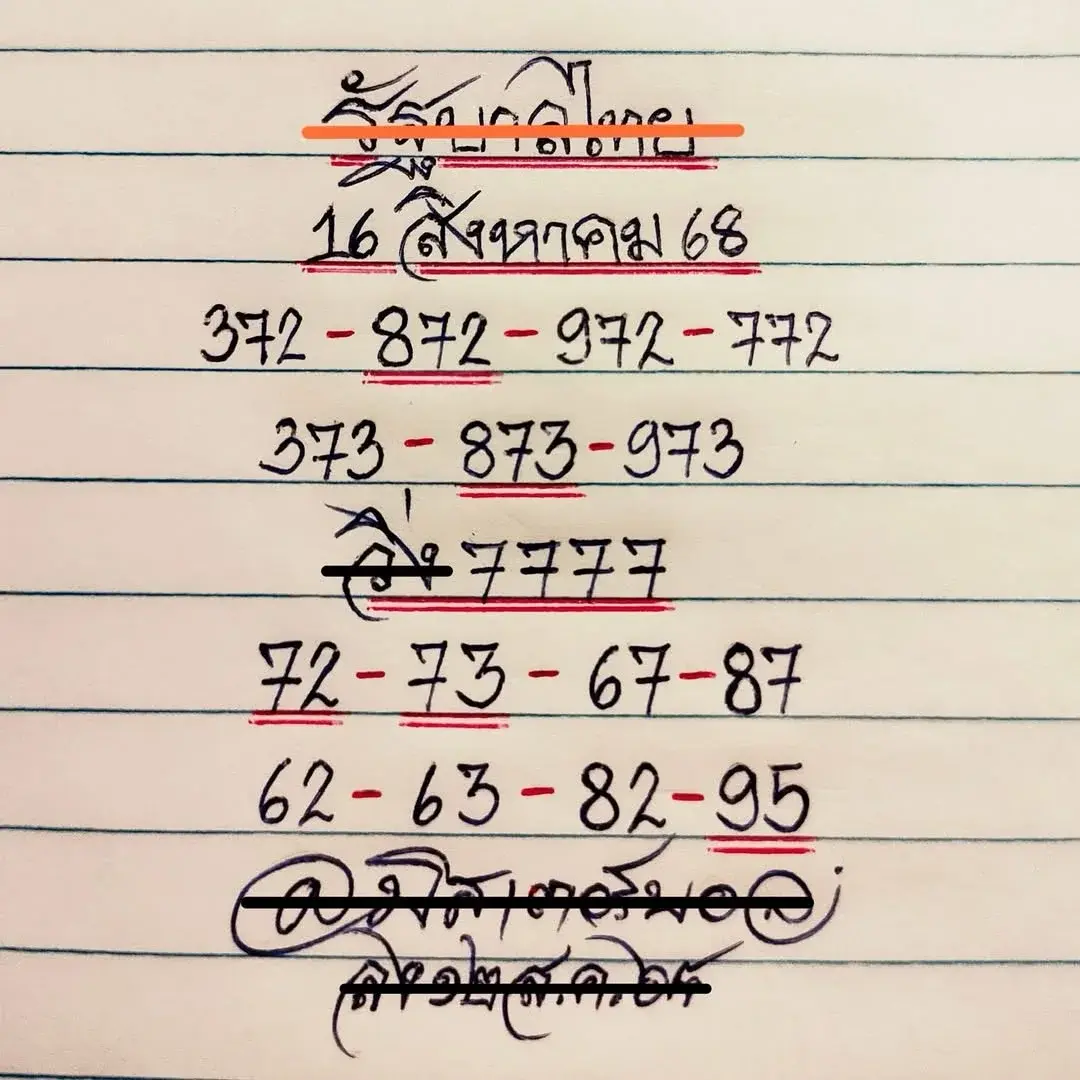 รัฐบาลไทย
16 สิงหาคม 68
372 - 872 - 972 - 772
373 - 873 - 973
วิ่ง 7777
72 - 73 - 67 - 87
62 - 63 - 82 - 95